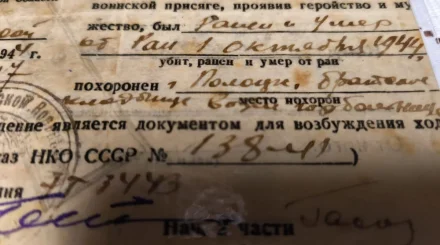 воинской присяге, проявив геройство и му
жество, был ранен и умер
194 г. от ран 1 октября 1944
убит, ранен и умер от ран
похоронен г Полоцк, братское
кладбище
место похорон
ение является документом для возбуждения хо
аз НКО СССР № 138-41)
ния 7Т 3443
Нач. 2 части